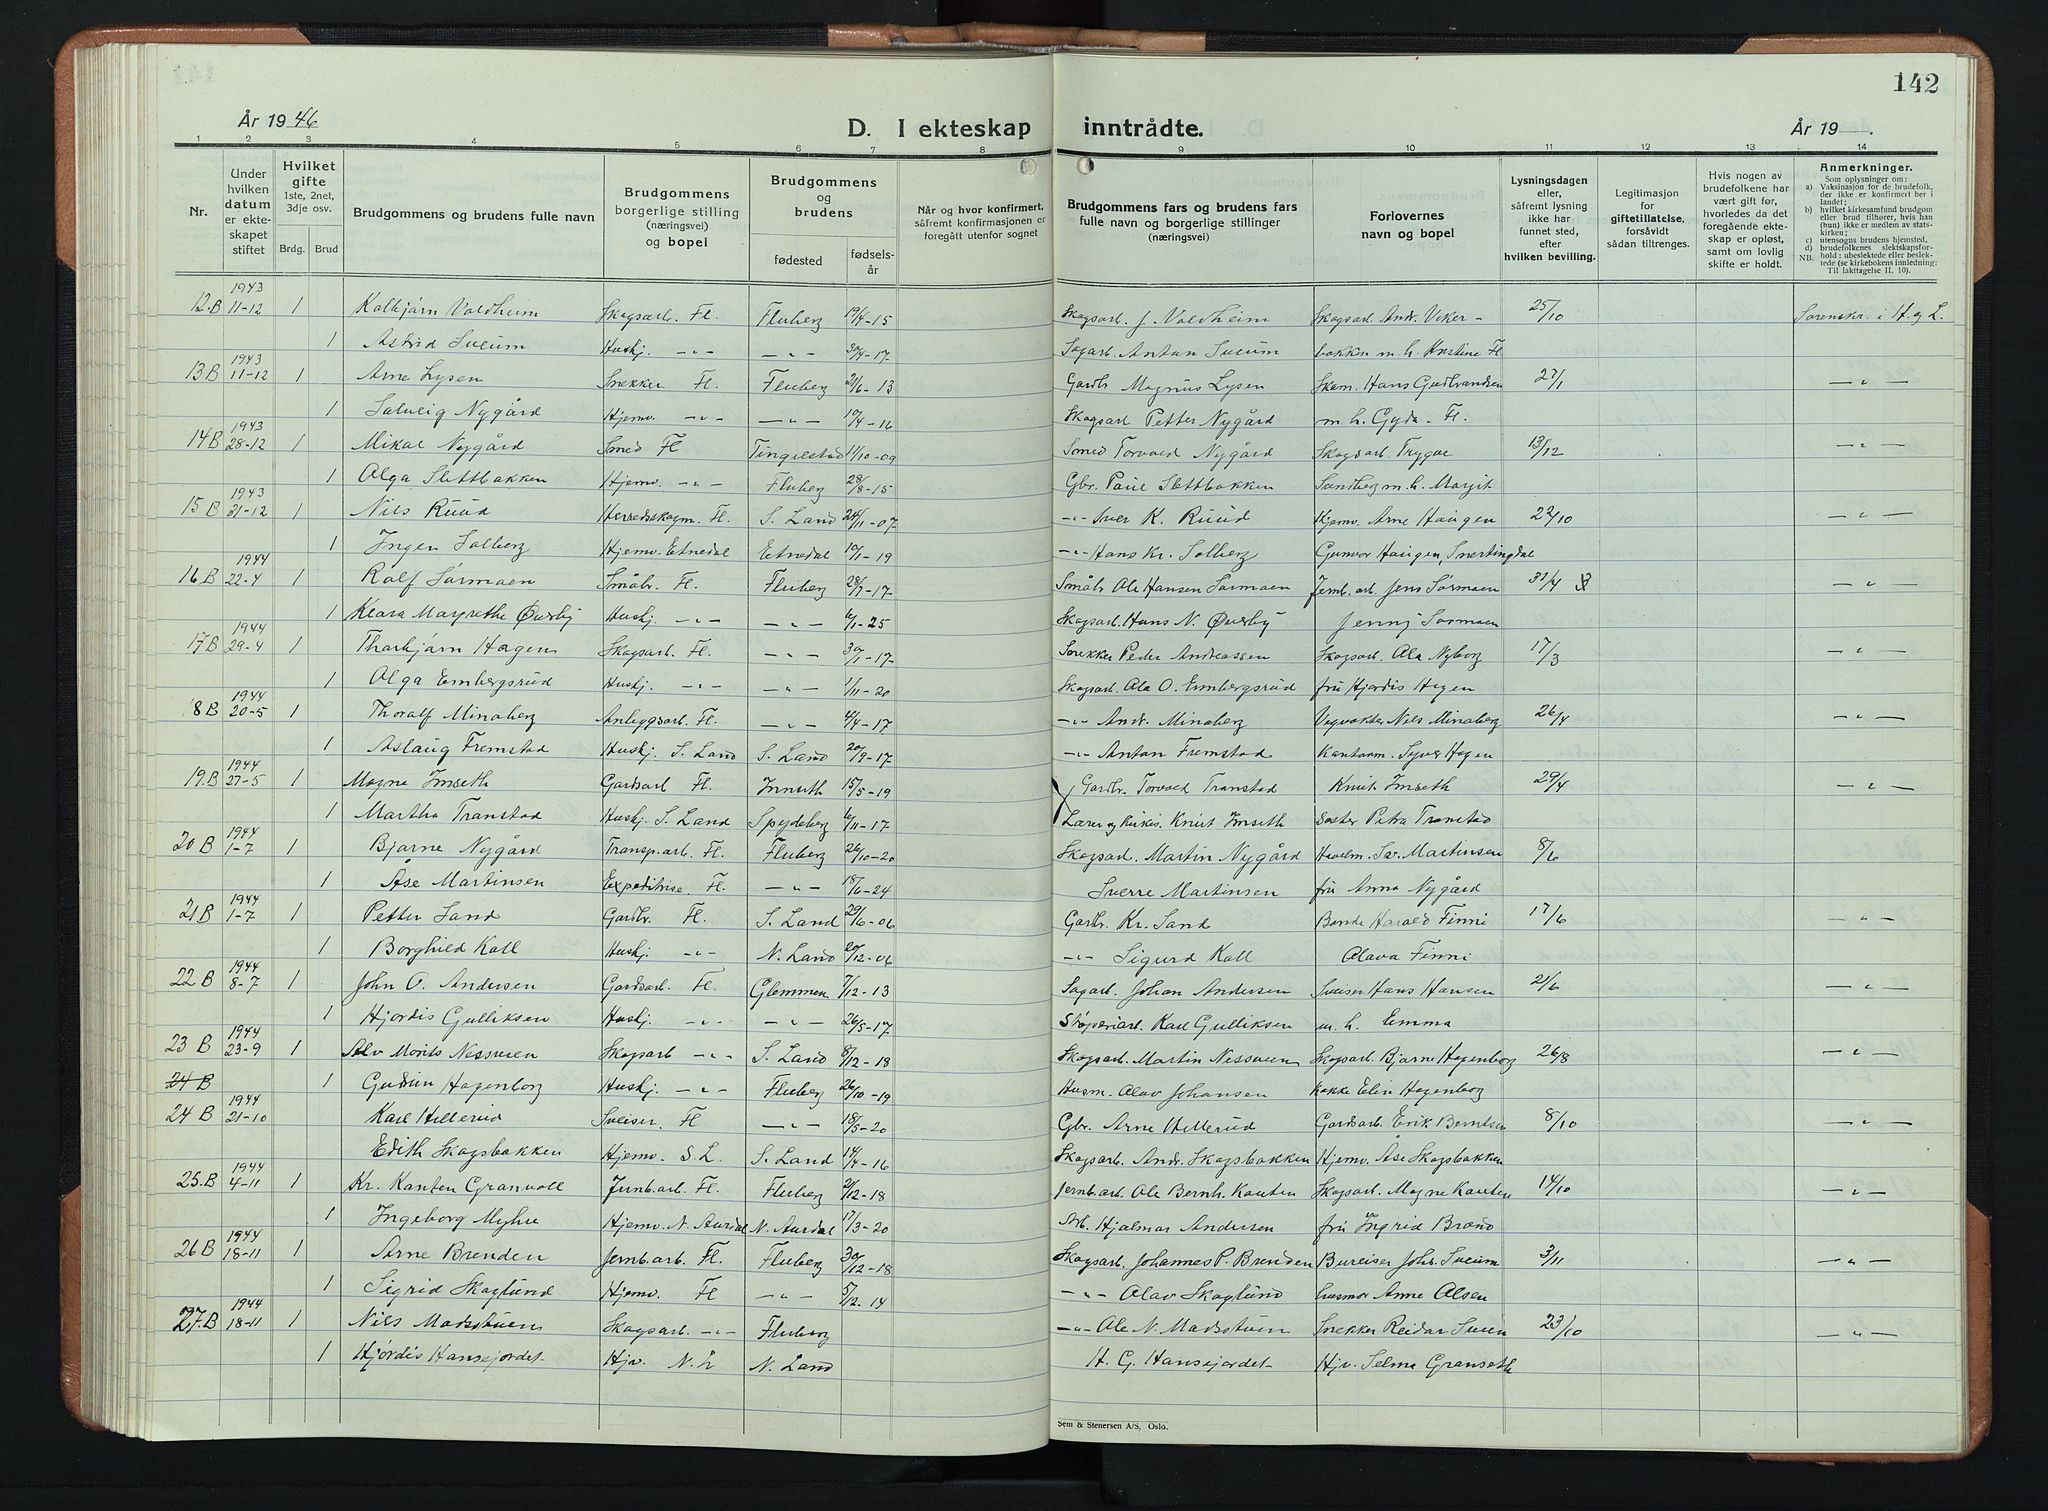 142
År 1946
D. I ekteskap inntrådte.
År 19 .
1 2 3 4 5 6 7 8 9 10 11 12 13 14
Nr.
Under hvilken datum er ekteskapet stiftet
Hvilket gifte 1ste, 2net, 3dje osv.
Brdg. Brud
Brudgommens og brudens fulle navn
Brudgommens borgerlige stilling (næringsvei) og bopel
Brudgommens og brudens
fødested fødselsår
Når og hvor konfirmert, såfremt konfirmasjonen er foregått utenfor sognet
Brudgommens fars og brudens fars fulle navn og borgerlige stillinger (næringsvei)
Forlovernes navn og bopel
Lysningsdagen eller, såfremt lysning ikke har funnet sted, efter hvilken bevilling.
Legitimasjon for giftetillatelse, forsåvidt sådan tiltrenges.
Hvis nogen av brudefolkene har vært gift før, hvorledes da det foregående ekteskap er opløst, samt om lovlig skifte er holdt.
Anmerkninger.
Som oplysninger om:
a) Vaksinasjon for de brudefolk, der ikke er konfirmert her i landet;
b) hvilket kirkesamfund brudgom eller brud tilhører, hvis han (hun) ikke er medlem av statskirken;
c) utensogns brudens hjemsted.
d) brudefolkenes slektskapsforhold: ubeslektede eller beslektede (se kirkebokens innledning: Til Iakttagelse II. 10).
NB.
12.B 1943 11-12 1 Kolbjørn Valdheim Skogsarb. Fl. Fluberg 19/4-15 Skogsarb. J. Valdheim Skogsarb. Andr. Viker- 25/10 Sorenskr. i H. og L.
1 Astrid Sveum Huskj. -"- -"- 30/4-17 Sagarb. Anton Sveum bakken m. h. Kristine Fl.
13B 1943 11-12 1 Arne Lysen Snekker Fl. Fluberg 21/6-13 Gardbr Magnus Lysen Skom. Hans Gudbrandsen 27/1 -"-
1 Solveig Nygård Hjemv. -"- -"- 10/4-16 Skogsarb Petter Nygård m. h. Gyda. Fl.
14B 1943 28-12 1 Mikal Nygård Smed Fl Tingelstad 14/10-09 Smed Torvald Nygård Skogsarb. Trygve 13/12 -"-
1 Olga Slettbakken Hjemv. -"- Fluberg 28/8-15 Gbr. Paul Slettbakken Sandberg m. h. Margit
15B 1943 31-12 1 Nils Ruud Herredskogm. Fl. S. Land 24/11-07 -"- Iver K. Ruud Hjemv. Arne Haugen 22/10 -"-
1 Inger Solberg Hjemv. Etnedal Etnedal 10/1-19 -"- Hans Kr. Solberg Gunvor Haugen, Snertingdal
16B 1944 22-4 1 Rolf Sørmoen Småbr. Fl. Fluberg 28/7-17 Småbr Ole Hansen Sørmoen Jernb. arb. Jens Sørmoen 31/4 -"-
1 Klara Margrethe Øverby Huskj. -"- -"- 6/1-25 Skogsarb. Hans N. Øverby Jenny Sørmoen
17B 1944 29-4 1 Thorbjørn Hagen Skogsarb. Fl. -"- 30/1-17 Snekker Peder Andreassen Skogsarb. Ola Nyborg 17/3 -"-
1 Olga Embergsrud Huskj. -"- -"- 1/11-20 Skogsarb. Ola O. Embergsrud fru Hjørdis Hagen
18B 1944 20-5 1 Thoralf Minaberg Anleggsarb. Fl. -"- 4/4-17 -"- Andr. Minaberg Vegvokter Nils Minaberg 26/4 -"-
1 Aslaug Fremstad Huskj. S. Land S. Land 20/9-17 -"- Anton Fremstad Kontorm. Syver Hagen
19.B 1944 27-5 1 Magne Imseth Gardsarb Fl. 15/5-19 Gardbr. Torvald Transtad Knut Imseth 29/4 -"-
1 Martha Transtad Huskj. S. Land Spydeberg 6/11-17 Lærer og Kirkes. Knut Imseth søster Petra Transtad
20B 1944 1-7 1 Bjarne Nygård Transp.arb. Fl. Fluberg 26/10-20 Skogsarb. Martin Nygård Sv. Martinsen 8/6
1 Åse Martinsen Expeditrise. Fl. -"- 18/6-24 Sverre Martinsen fru Anna Nygård
21B 1944 1-7 1 Petter Sand Gardbr. Fl. S. Land 29/6-06 Gardbr. Kr. Sand Bonde Harald Finni 17/6 -"-
1 Borghild Koll Huskj. -"- N. Land 20/12-06 -"- Sigurd Koll Olava Finni
22B 1944 8-7 1 John O. Andersen Gardsarb. Fl. Glemmen 7/12-13 Sagarb. Johan Andersen Sveiser Hans Hansen 21/6 -"-
1 Hjørdis Gulliksen Huskj. -"- -"- 26/5-17 Støperiarb. Karl Gulliksen m. h. Emma
23B 1944 23-9 1 Alv Morits Nessveen Skogsarb -"- S. Land 8/12-18 Skogsarb. Martin Nessveen Skogsarb. Bjarne Hagenborg 26/8 -"-
24B 1 Gudrun Hagenborg Huskj. -"- Fluberg 26/10-19 Husm. Olav Johansen Kokke Elin Hagenborg
24B 1944 21-10 Karl Hillerud Sveiser. Fl -"- 18/5-20 Gbr. Arne Hillerud Gardsarb. Erik Berntsen 8/10 -"-
Edith Skogsbakken Hjemv. S L. S. Land 14/4-16 Skogsarb. Andr. Skogsbakken Hjemv. Åse Skogsbakken
25.B 1944 4-11 1 Kr. Kanten Granvoll Jernb.arb. Fl. Fluberg 2/12-18 Jernb.arb. Ole Bernh. Kanten Skogsarb. Magne Kanten 14/10 -"-
1 Ingeborg Myhre Hjemv. N. Aurdal N. Aurdal 17/3-20 Arb. Hjalmar Andersen fru Ingrid Brand
26B 1944 18-11 1 Arne Brenden Jernb.arb. Fl. Fluberg 30/12-18 Skogsarb. Johannes P. Brenden Bureiser Johs. Sveum 3/11 -"-
1 Sigrid Skoglund Hjemv. Fl -"- 5/12-14 -"- Olav Skoglund husmor Anne Olsen
27.B 1944 18-11 1 Nils Madsstuen Skogsarb. -"- Fluberg -"- Ole N. Madsstuen Snekker Reidar Sveen 23/10 -"-
1 Hjørdis Hansejordet Hjv. N. L N. Land H. G. Hansejordet Hjv. Selma Granseth
Sem & Stenersen A/S, Oslo.